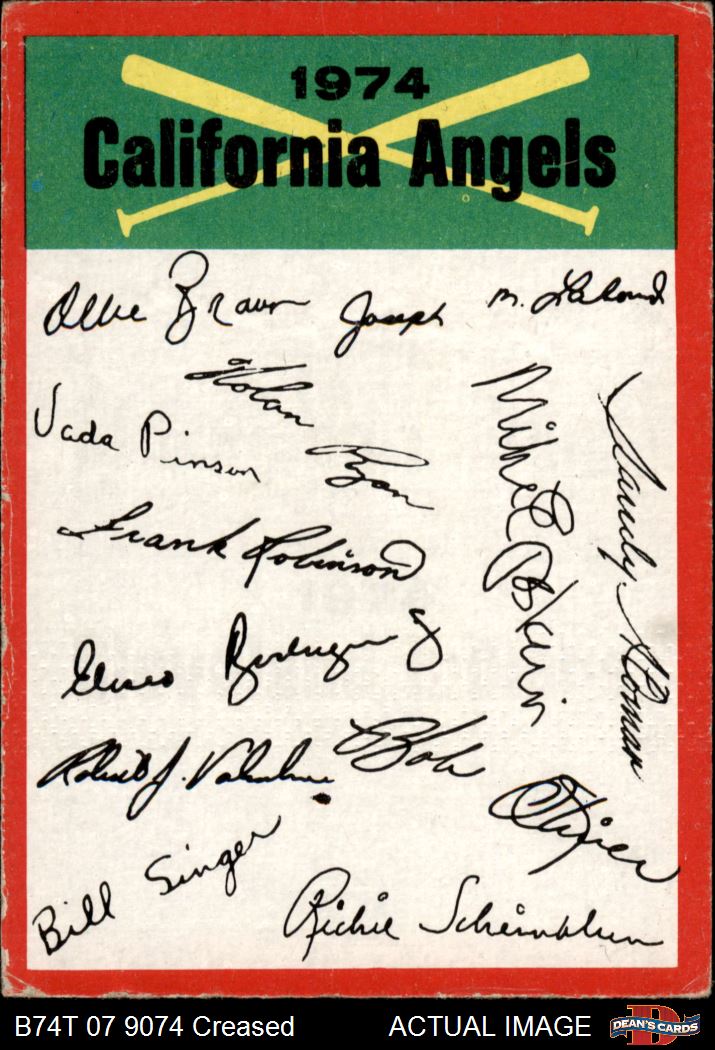 1974
California Angels
Ollie Brown
Joseph M. Lahoud
Nolan Ryan
Vada Pinson
Mike Epstein
Sandy Alomar
Frank Robinson
Eliseo Rodriguez
Robert J. Valentine
Bob Oliver
Bill Singer
Richie Scheinblum
B74T 07 9074 Creased
ACTUAL IMAGE
DEAN'S CARDS